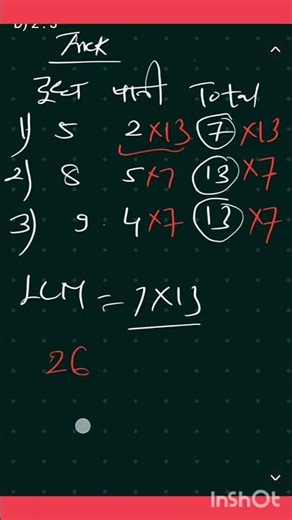 Trick
दूध पानी Total
1) 5 2 ×13 7 ×13
2) 8 5 ×7 13 ×7
3) 9 4 ×7 13 ×7
LCM = 7×13
26
InShOt